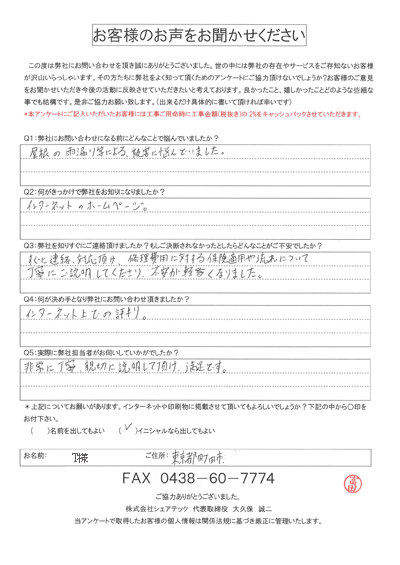 お客様のお声をお聞かせください
この度は弊社にお問い合わせを頂き誠にありがとうございました。世の中には弊社の存在やサービスをご存知ないお客様
が沢山いらっしゃいます。その方たちに弊社をよく知って頂くためのアンケートにご協力頂けないでしょうか?お客様のご意見
をお聞かせいただき今後の活動に反映させていただきたいと考えております。良かったこと、嬉しかったことどのような些細な
事でも結構です。是非ご協力お願い致します。(出来るだけ具体的に書いて頂ければ幸いです)
*本アンケートにご記入いただいたお客様には工事ご用命時に工事金額(税抜き)の2%をキャッシュバックさせていただきます。
Q1:弊社にお問い合わせになる前にどんなことで悩んでいましたか?
屋根の雨漏り等による、被害に悩んでいました。
Q2:何がきっかけで弊社をお知りになりましたか?
インターネットのホームページ。
Q3:弊社を知りすぐにご連絡頂けましたか?もしご決断されなかったとしたらどんなことがご不安でしたか?
すぐに連絡、対応頂け、修理費用に対する保険適用や流れについて
丁寧にご説明してくださり、不安が軽減くなりました。
Q4:何が決め手となり弊社にお問い合わせ頂きましたか?
インターネット上での評判。
Q5:実際に弊社担当者がお伺いしていかがでしたか?
非常に丁寧、親切に説明して頂け、満足です。
*上記についてお願いがあります。インターネットや印刷物に掲載させて頂いてもよろしいでしょうか?下記の中から〇印を
お付下さい。
( )名前を出してもよい (✓)イニシャルなら出してもよい
お名前: T様 ご住所: 東京都町田市
FAX 0438-60-7774
ご協力ありがとうございました。
株式会社シェアテック 代表取締役 大久保 誠二
当アンケートで取得したお客様の個人情報は関係法規に基づき厳正に管理いたします。